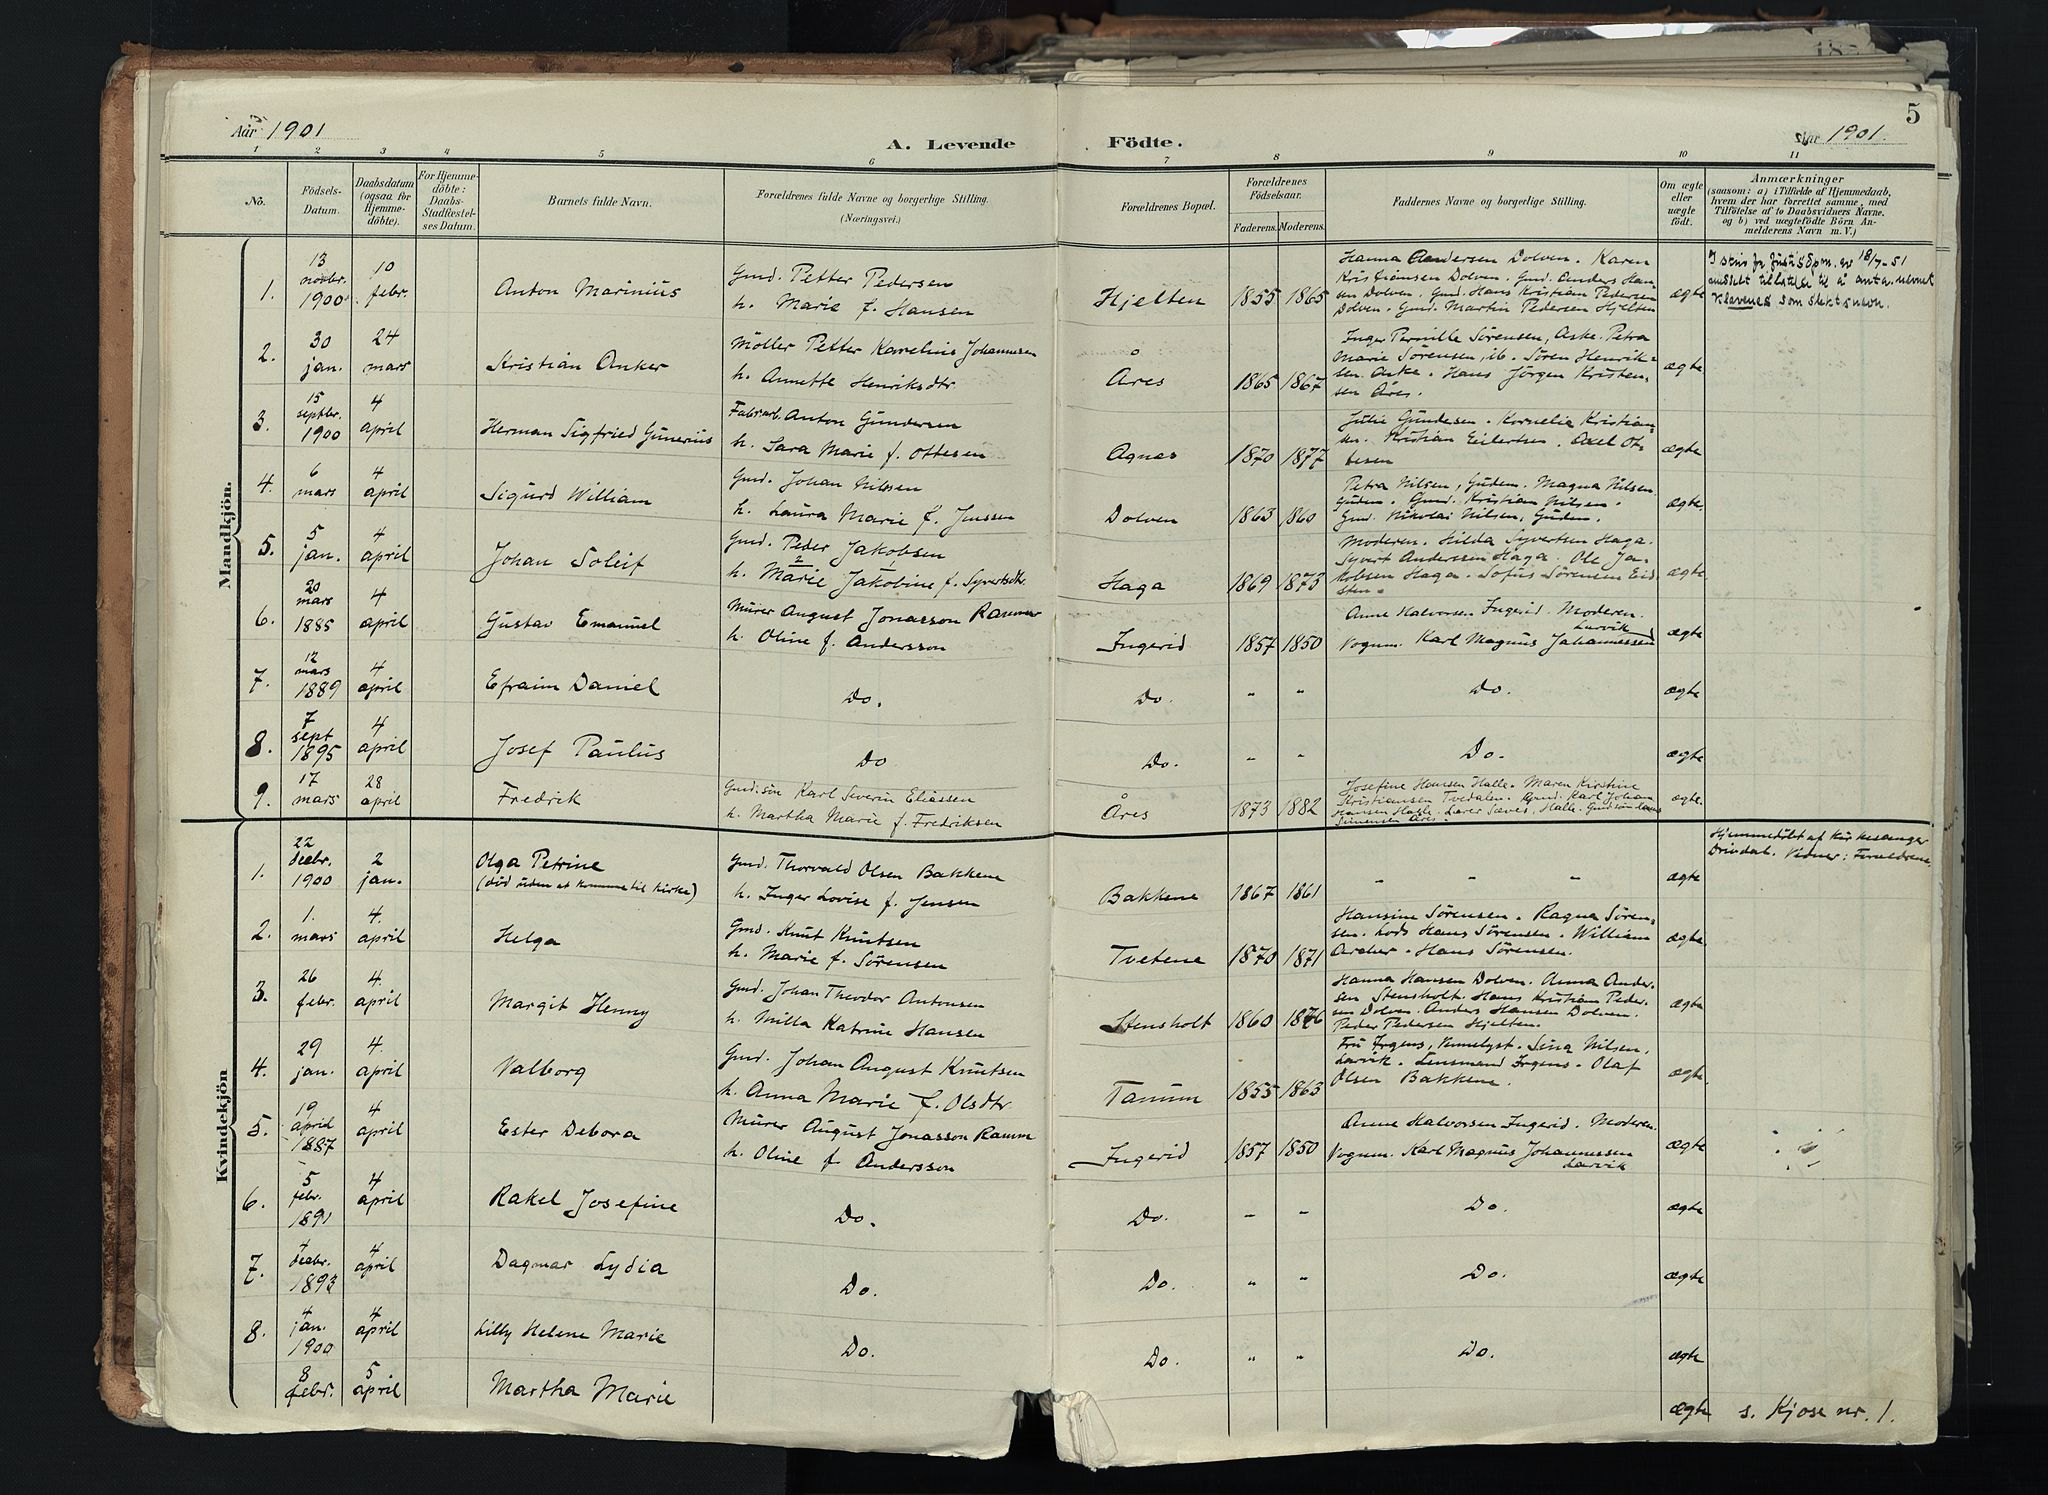 Aar 1901
A. Levende Födte.
Aar 1901.
5
1 2 3 4 5 6 7 8 9 10 11
No.
Födsels-Datum.
Daabsdatum (ogsaa for Hjemmedöbte).
For Hjemmedöbte: Daabs-Stadfestelses Datum.
Barnets fulde Navn.
Forældrenes fulde Navne og borgerlige Stilling. (Næringsvei.)
Forældrenes Bopæl.
Forældrenes Födselsaar.
Faderens. Moderens.
Faddernes Navne og borgerlige Stilling.
Om ægte eller uægte födt.
Anmærkninger
(saasom: a) i Tilfælde af Hjemmedaab, hvem der har forrettet samme, med Tilföielse af to Daabsvidners Navne. og b) ved uægtefödte Börn Anmelderens Navn m. V.)
Mandkjön.
1. 13 novbr. 1900 10 febr. Anton Marinius
Gmd. Petter Pedersen
h. Marie f. Hansen
Hjelten 1855 1865
Hanna Andersen Dolven. Karen
Kristiansen Dolven. Gmd. Anders Han-
sen Dolven. Gmd. Hans Kristian Pedersen
Dolven. Gmd. Martin Pedersen Hjelten
ægte
I skriv fra Justisdpm. av 18/7-51
meddelt tillatelse til å anta navnet
Klavenes som slektsnavn.
2. 30 jan. 24 mars Kristian Anker
Möller Petter Karelius Johannesen
h. Annette Henriksdtr
Åres 1865 1867
Inger Pernille Sørensen, Aske. Petra
Marie Sørensen, ib. Søren Henrik-
sen Aske. Hans Jörgen Kristen-
sen Åres.
ægte
3. 15 septbr. 1900 4 april Herman Sigfried Gunerius
Fabrarb. Anton Gundersen
h. Sara Marie f. Ottesen
Agnes 1870 1877
Julie Gundesen. Kornelia Kristian-
sen. Kristian Eilertsen. Axel Ot-
tesen
ægte
4. 6 mars 4 april Sigurd William
Gmd. Johan Nilssen
h. Laura Marie f. Jenssen
Dolven 1863 1860
Petra Nilsen, Gudem. Magna Nilsen
Gudem. Gmd. Kristian Nilsen.
Gmd. Nikolai Nilsen, Gudem.
ægte
5. 5 jan. 4 april Johan Soleif
Gmd. Peder Jakobsen
h. Marie Jakobine f. Syvertsdtr.
Haga 1869 1873
Moderen. Hilda Syvertsen Haga.
Syvert Anderssen Haga. Ole Ja-
kobsen Haga. Sofus Sørensen Eid-
sten.
ægte
6. 20 mars 1885 4 april Gustav Emanuel
Murer August Jonasson Ramm
h. Oline f. Andersson
Ingerid 1857 1850
Anne Halvorsen Ingerid. Moderen.
Vognm. Karl Magnus Johannessen
Larvik
ægte
7. 12 mars 1889 4 april Efraim Daniel
Do. Do. " " Do. ægte
8. 7 sept 1895 4 april Josef Paulus
Do Do. " " Do. ægte
9. 17 mars 28 april Fredrik
Gmdssøn Karl Severin Eliassen
h. Martha Marie f. Fredriksen
Åres 1873 1882
Josefine Hansen Halle. Maren Kirstine
Kristiansen Tvedalen. Gmd. Karl Johan
Hansen Halle. Lærer Næves, Halle. Gmdssøn
Simensen Åres
ægte
Kvindekjön
1. 22 decbr. 1900 2 jan. Olga Petrine
(död uden at komme til kirke)
Gmd. Thorvald Olsen Bakkene
h. Inger Lovise f. Jensen
Bakkene 1867 1861
" " "
ægte
Hjemmedöbt af Kirkesanger
Drivdal. Vidner: Forældrene
2. 1. mars 4. april Helga
Gmd. Knut Knutsen
h. Marie f. Sörensen
Tvetene 1870 1871
Hansine Sørensen. Ragna Søren-
sen. Lods Hans Sørensen. William
Archer. Hans Sørensen.
ægte
3. 26 febr. 4. april Margit Henny
Gmd. Johan Theodor Antonsen
h. Milla Katrine Hansen
Stensholt 1860 1876
Hanna Hansen Dolven. Anna Ander-
sen Stensholt. Hans Kristian Peder-
sen Dolven. Anders Hansen Dolven.
Peder Pedersen Hjelten.
ægte
4. 29 jan. 4. april Valborg
Gmd. Johan August Knutsen
h. Anna Marie f. Olsdtr
Tanum 1855 1863
Fru Irgens, Vennelyst. Lina Nilsen,
Larvik. Lensmand Irgens. Olaf
Olsen Bakkene.
ægte
5. 19 april 1887 4 april Ester Debora
Murer August Jonasson Ramm
h. Oline f Andersson
Ingerid 1857 1850
Anne Halvorsen Ingerid. Moderen.
Vognm. Karl Magnus Johannessen
Larvik
ægte
6. 5 febr. 1891 4 april Rakel Josefine
Do. Do. " " Do. ægte
7. 4 decbr. 1893 4 april Dagmar Lydia
Do. Do. " " Do. ægte
8. 4 jan. 1900 4 april Lilly Helene Marie
Do. Do. " " Do. ægte
8 febr. 5 april Martha Marie
ægte s. Kjose nr. 1.